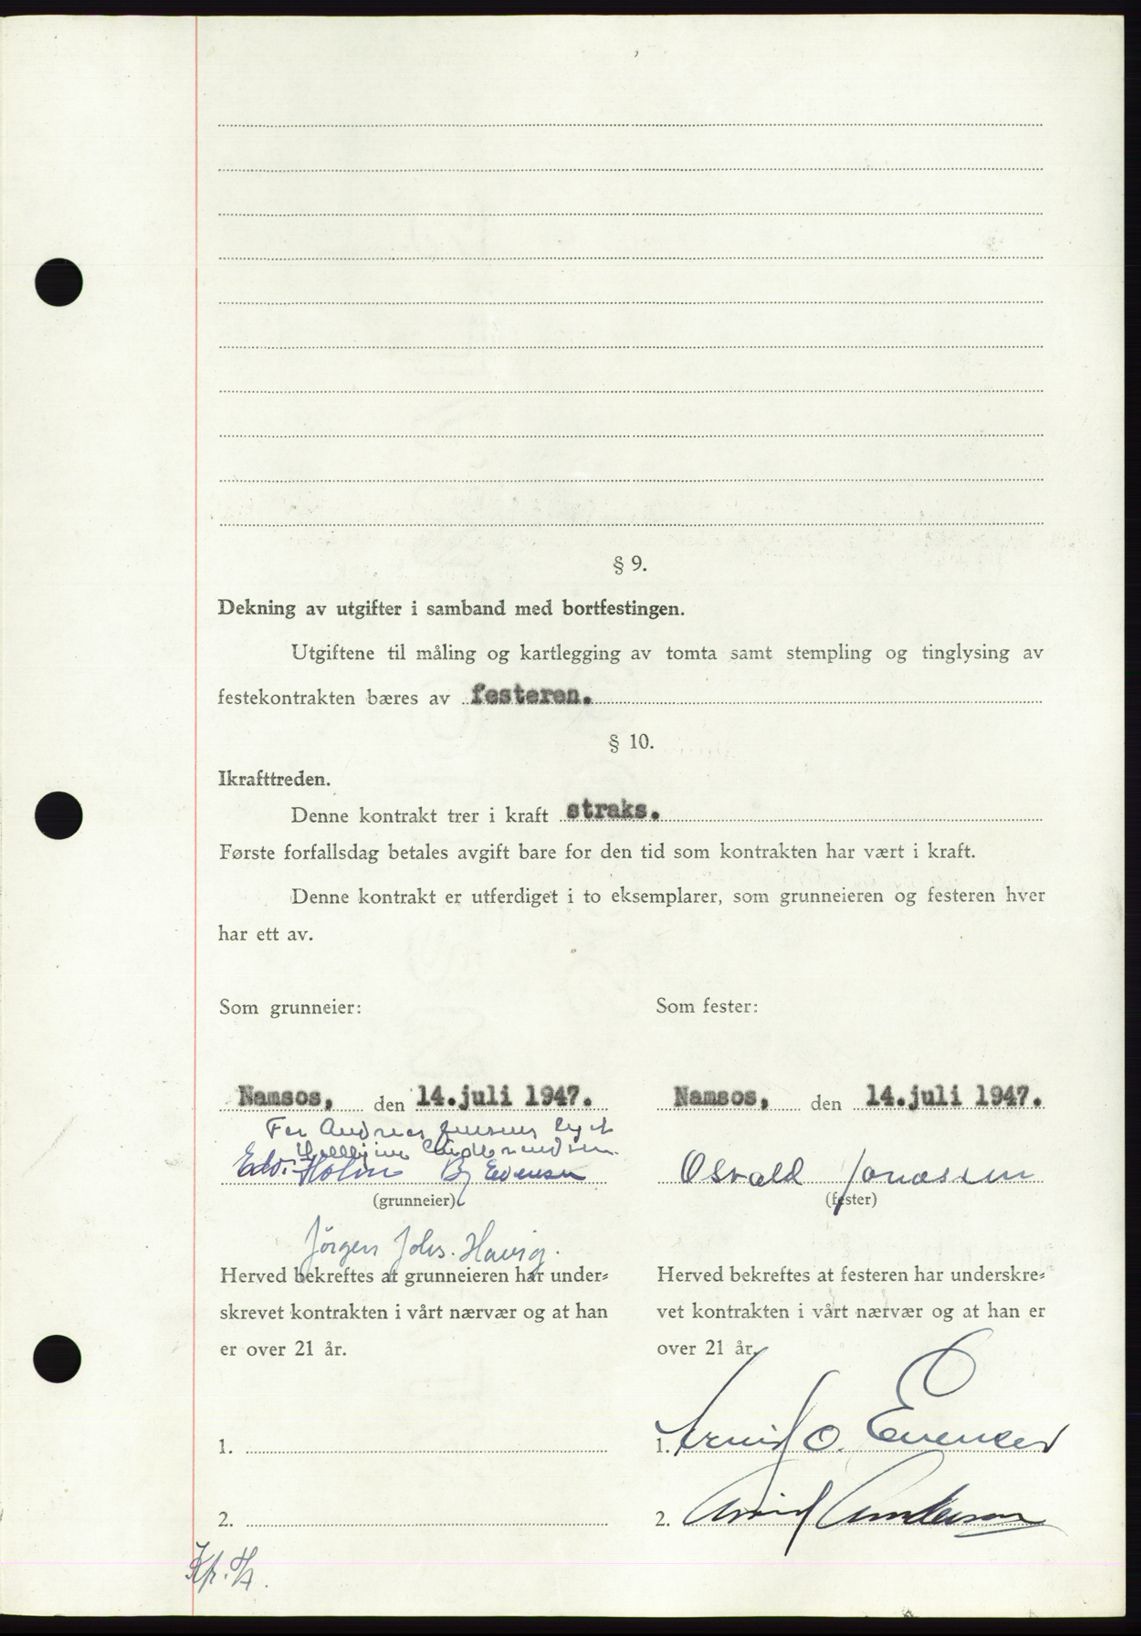 § 9.
Dekning av utgifter i samband med bortfestingen.
Utgiftene til måling og kartlegging av tomta samt stempling og tinglysing av
festekontrakten bæres av festeren.
§ 10.
Ikrafttreden.
Denne kontrakt trer i kraft straks.
Første forfallsdag betales avgift bare for den tid som kontrakten har vært i kraft.
Denne kontrakt er utferdiget i to eksemplarer, som grunneieren og festeren hver
har ett av.
Som grunneier:
Namsos, den 14.juli 1947.
For Andreas Jensens
Edv. Holm Bj Evensen
(grunneier)
Jörgen Johs. Havig.
Herved bekreftes at grunneieren har under-
skrevet kontrakten i vårt nærvær og at han
er over 21 år.
1.
2.
Som fester:
Namsos, den 14.juli 1947.
Osvald Jonassen
(fester)
Herved bekreftes at festeren har underskre-
vet kontrakten i vårt nærvær og at han er
over 21 år.
1. Arvid O. Evensen
2. Arvid Andersen